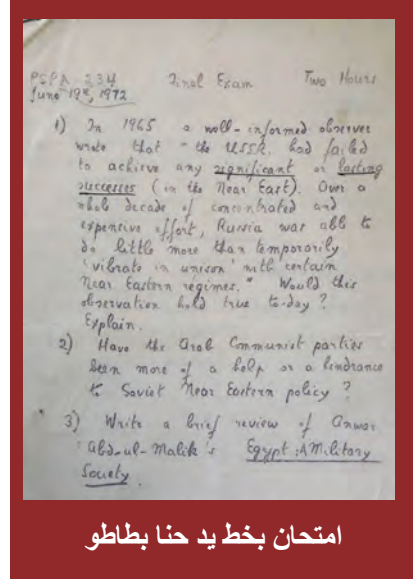 PSPA-234 Final Exam Two Hours
June 19th, 1972
1) In 1965 a well-informed observer
wrote that "the USSR had failed
to achieve any significant or lasting
successes (in the Near East). Over a
whole decade of concentrated and
expensive effort, Russia was able to
do little more than temporarily
'vibrate in unison' with certain
Near Eastern regimes." Would this
observation hold true to-day?
Explain.
2) Have the Arab Communist parties
been more of a help or a hindrance
to Soviet Near Eastern policy?
3) Write a brief review of Anwar
Abd-ul-Malik's Egypt: A Military
Society
امتحان بخط يد حنا بطاطو